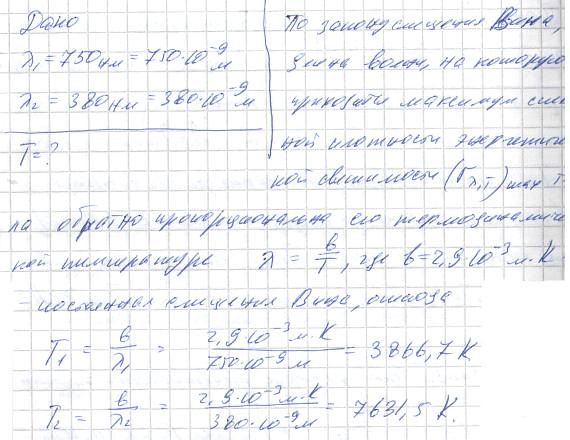 Дано
λ₁ = 750 нм = 750·10⁻⁹ м
λ₂ = 380 нм = 380·10⁻⁹ м
T = ?
По закону смещения Вина,
длина волны, на которую
приходится максимум
ной плотности энергетичес
кой светимости (r λ,T) max т
ла обратно пропорциональна его термодинамичес
кой температуре λ = b/T, где b = 2,9·10⁻³ м·К
- постоянная смещения Вина, отсюда
T₁ = b/λ₁ = 2,9·10⁻³ м·К / 750·10⁻⁹ м = 3866,7 К
T₂ = b/λ₂ = 2,9·10⁻³ м·К / 380·10⁻⁹ м = 7631,5 К.